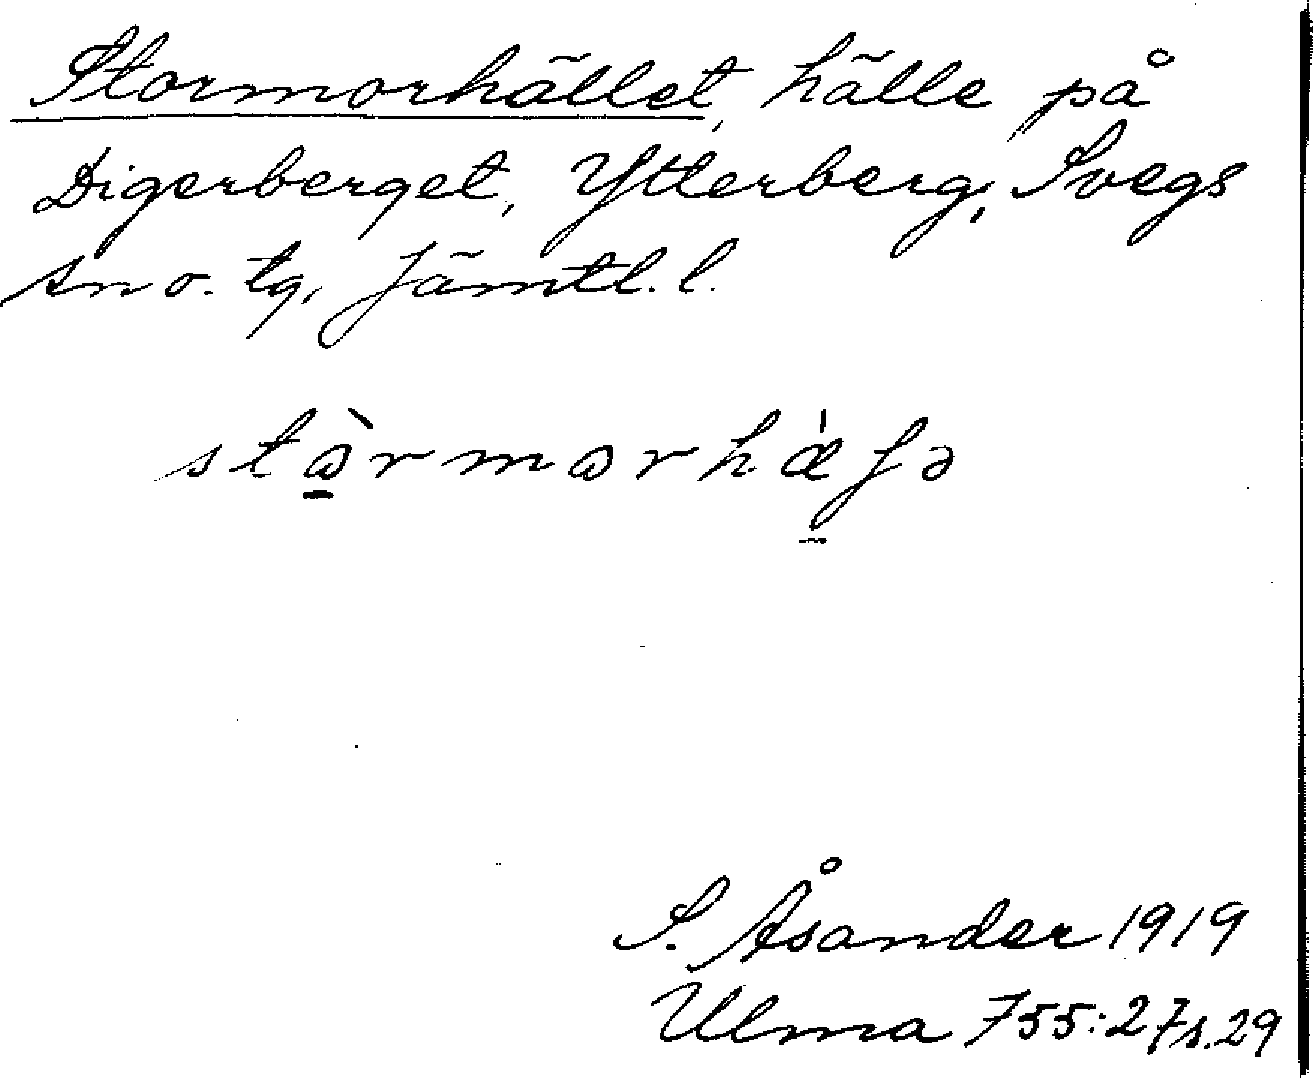 Stormorhället, hälle på
Digerberget, Ytterberg, Svegs
sn o. tg, Jämtl. l.
S. Åsander 1919
Ulma 755:27 s. 29